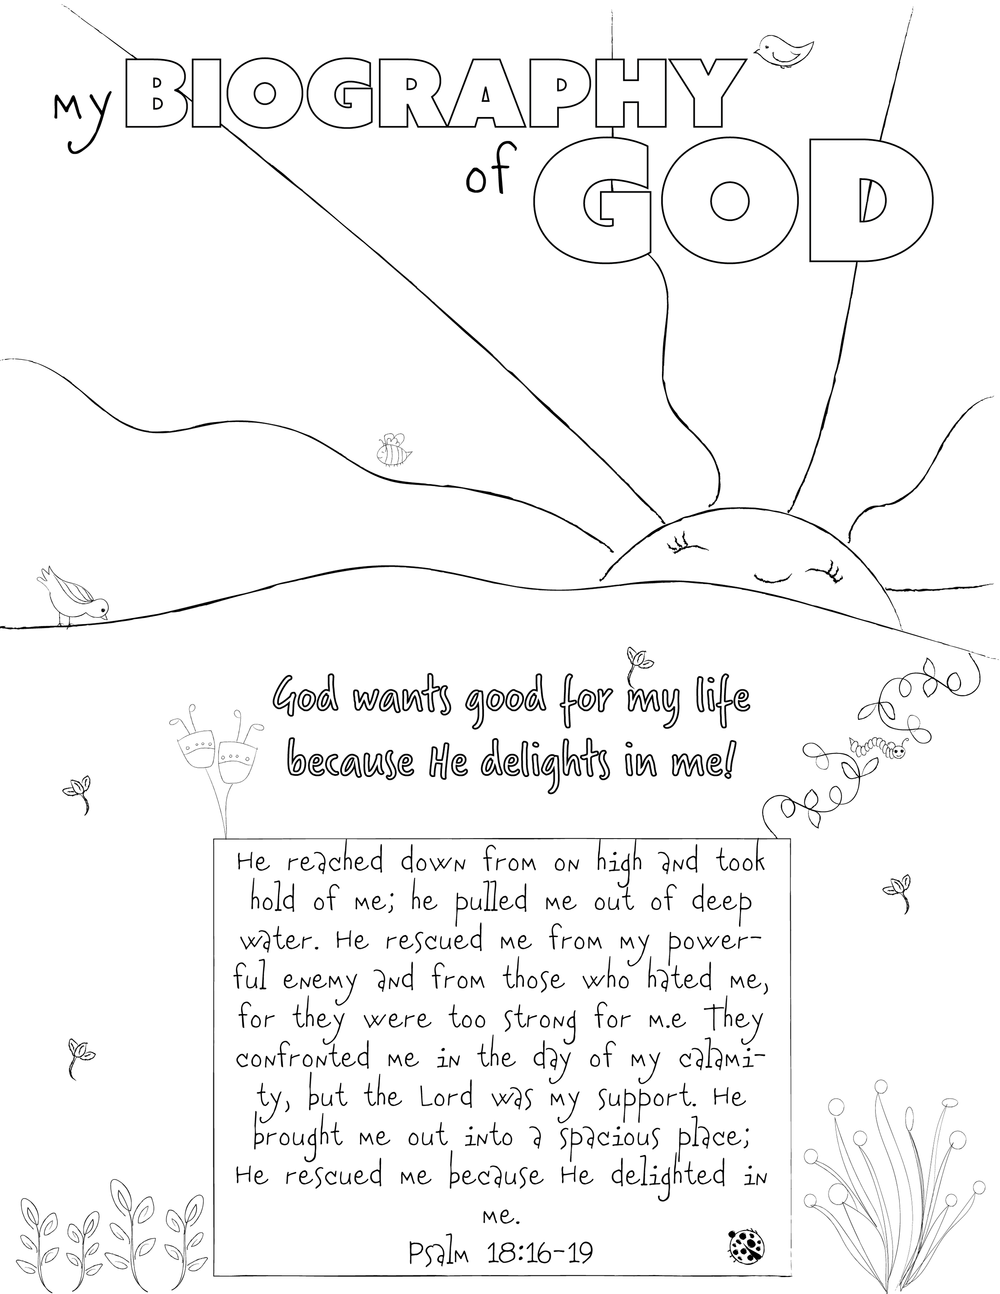 my BIOGRAPHY
of GOD
God wants good for my life
because He delights in me!
He reached down from on high and took
hold of me; he pulled me out of deep
water. He rescued me from my power-
ful enemy and from those who hated me,
for they were too strong for m.e They
confronted me in the day of my calami-
ty, but the Lord was my support. He
brought me out into a spacious place;
He rescued me because He delighted in
me.
Psalm 18:16-19